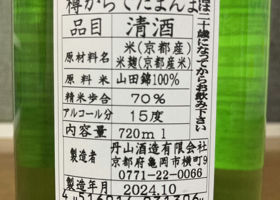 樽からでたまんまほ
二十歳になってからお飲み下さい
品目 清酒
原材料名 米(京都産)
米麹(京都産米)
原料米 山田錦100%
精米歩合 70%
アルコール分 15度
内容量 720ml
製造者 丹山酒造有限会社
京都府亀岡市横町9
0771-22-0066
製造年月 2024.10